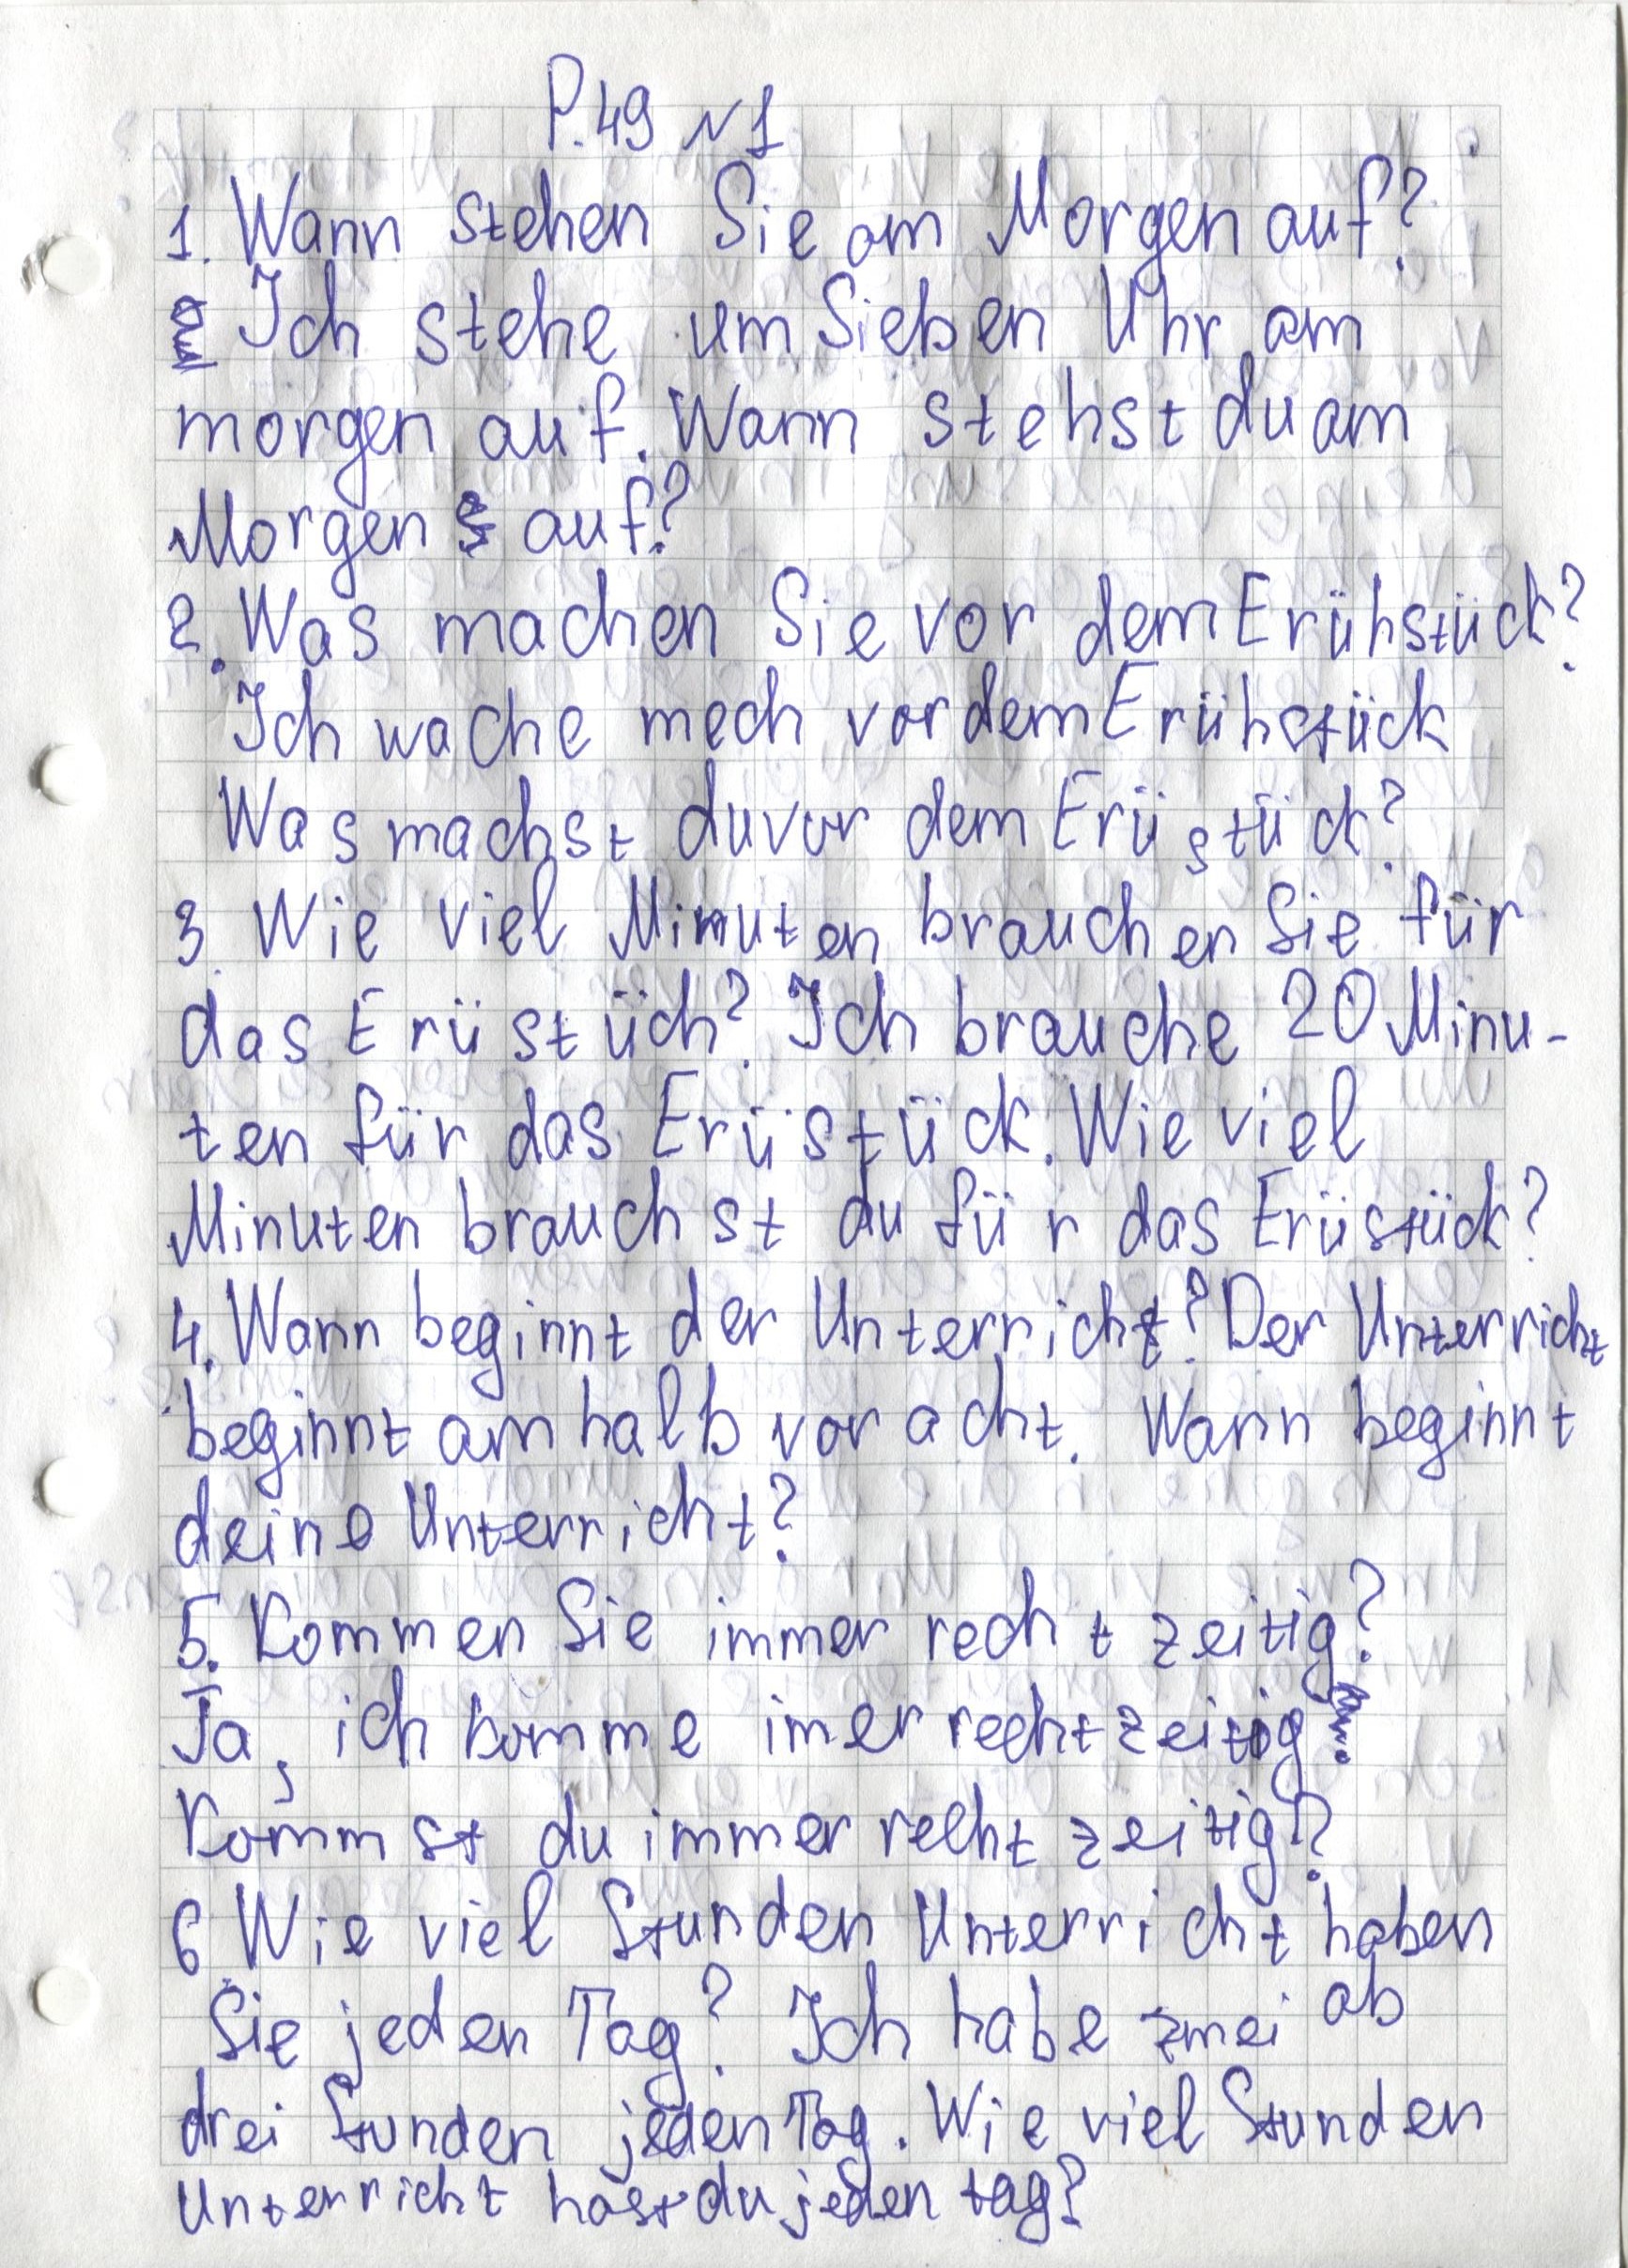 P. 49 N 1
1. Wann stehen Sie am Morgen auf?
Ich stehe um Sieben Uhr am
morgen auf. Wann stehst du am
Morgen auf?
2. Was machen Sie vor dem Erühstück?
Ich wache mech vor dem Erühstück
Was machst du vor dem Erüstück?
3. Wie viel Minuten brauchen Sie für
das Erüstüch? Ich brauche 20 Minu-
ten für das Erüstück. Wie viel
Minuten brauchst du für das Erüstück?
4. Wann beginnt der Unterricht? Der Unterricht
beginnt am halb vor acht. Wann beginnt
deine Unterricht?
5. Kommen Sie immer recht zeitig?
Ja, ich komme imer rechtzeitig
Kommst du immer recht zeitig?
6. Wie viel Stunden Unterricht haben
Sie jeden Tag? Ich habe zwei ab
drei Stunden jeden Tag. Wie viel Stunden
Unterricht hast du jeden tag?